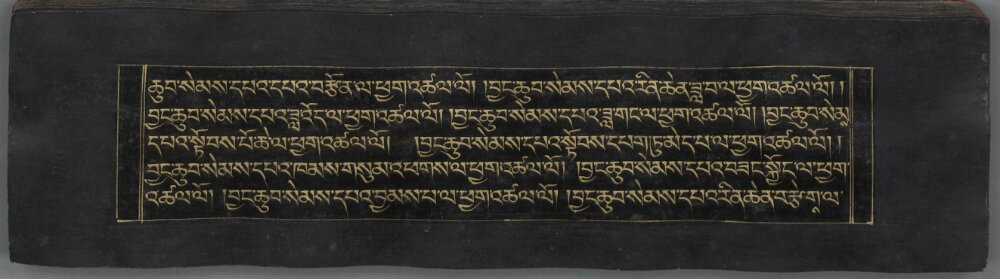 ཆུབ་སེམས་དཔའ་དཔའ་བརྩོན་ལ་ཕྱག་འཚལ་ལོ། །བྱང་ཆུབ་སེམས་དཔའ་རིན་ཆེན་ཟླ་བ་ལ་ཕྱག་འཚལ་ལོ། །
བྱང་ཆུབ་སེམས་དཔའ་ཟླ་འོད་ལ་ཕྱག་འཚལ་ལོ། །བྱང་ཆུབ་སེམས་དཔའ་ཟླ་གང་ལ་ཕྱག་འཚལ་ལོ། །བྱང་ཆུབ་སེམ
དཔའ་སྟོབས་པོ་ཆེ་ལ་ཕྱག་འཚལ་ལོ། །བྱང་ཆུབ་སེམས་དཔའ་སྟོབས་དཔག་ཏུ་མེད་པ་ལ་ཕྱག་འཚལ་ལོ། །
བྱང་ཆུབ་སེམས་དཔའ་ཁམས་གསུམ་འཕགས་ལ་ཕྱག་འཚལ་ལོ། །བྱང་ཆུབ་སེམས་དཔའ་བཟང་སྐྱོང་ལ་ཕྱག་
འཚལ་ལོ། །བྱང་ཆུབ་སེམས་དཔའ་བྱམས་པ་ལ་ཕྱག་འཚལ་ལོ། །བྱང་ཆུབ་སེམས་དཔའ་རིན་ཆེན་བརྩེགས་ལ་